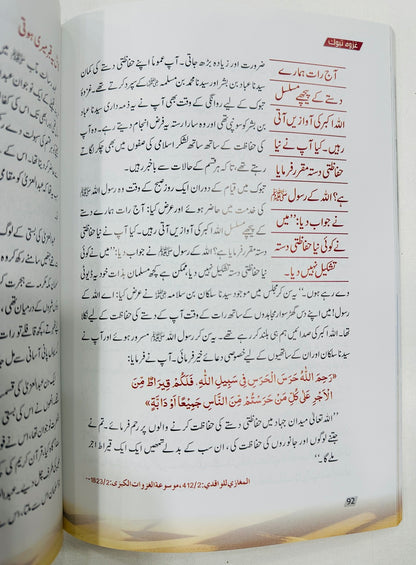 غزوۂ تبوک
ضرورت اور زیادہ بڑھ جاتی۔ آپ عموماً اپنے حفاظتی دستے کی کمان
سیدنا عباد بن بشر اور سیدنا محمد بن مسلمہ ﷺ کے سپرد کرتے تھے۔ غزوۂ
تبوک کے لیے روانگی کے وقت بھی آپ نے یہ ذمہ داری سیدنا عباد
بن بشر کو سونپی تھی اور وہ سارا رستہ یہ فرض انجام دیتے رہے۔ وہ
اپنے ساتھیوں کے ساتھ لشکر اسلامی کی صفوں میں بھی چکر لگاتے
رہتے تھے، تاکہ ہر قسم کے حالات سے باخبر رہیں۔
تبوک میں قیام کے دوران ایک روز صبح کے وقت وہ رسول اللہ ﷺ
کی خدمت میں حاضر ہوئے اور عرض کیا: آج رات ہمارے دستے
کے پیچھے مسلسل اللہ اکبر کی آوازیں آتی رہیں۔ کیا آپ نے نیا حفاظتی
دستہ مقرر فرمایا ہے؟ اللہ کے رسول ﷺ نے جواب دیا: ”میں نے کوئی
نیا حفاظتی دستہ تشکیل نہیں دیا، ممکن ہے کچھ مسلمان بذات خود یہ ڈیوٹی
آج رات ہمارے
دستے کے پیچھے مسلسل
اللہ اکبر کی آوازیں آتی
رہیں۔ کیا آپ نے نیا
حفاظتی دستہ مقرر فرمایا
ہے؟ اللہ کے رسول ﷺ
نے جواب دیا: ”میں
نے کوئی نیا حفاظتی دستہ
تشکیل نہیں دیا۔
دے رہے ہوں۔“ یہ سن کر مجلس میں موجود سیدنا سلکان بن سلامہ نے عرض کیا: اے اللہ کے
رسول! میں اپنے دس گھڑ سوار مجاہدوں کے ساتھ رات کے وقت آپ کے دستے کی حفاظت کے لیے نکلا
تھا۔ اللہ اکبر کی صدائیں ہم ہی بلند کر رہے تھے۔ یہ سن کر رسول اللہ ﷺ مسرور ہوئے اور آپ نے
سیدنا سلکان اور ان کے ساتھیوں کے لیے خصوصی دعائے خیر فرمائی۔ آپ نے فرمایا:
«رَحِمَ اللّٰهُ حَرَسَ الْحَرَسِ فِي سَبِيلِ اللّٰهِ، فَلَكُمْ قِيرَاطٌ مِّنَ
الْأَجْرِ عَلٰى كُلِّ مَنْ حَرَسْتُمْ مِنَ النَّاسِ جَمِيعًا أَوْ دَابَّةٍ»
”اللہ تعالیٰ میدان جہاد میں حفاظتی دستے کی حفاظت کرنے والوں پر رحم فرمائے۔ تم نے
جتنے لوگوں اور جانوروں کی حفاظت کی، ان سب کے بدلے تمھیں ایک ایک قیراط اجر
ملے گا۔“
المغازي للواقدي: 412/2، موسوعة الغزوات الكبرى: 1823/2۔
92